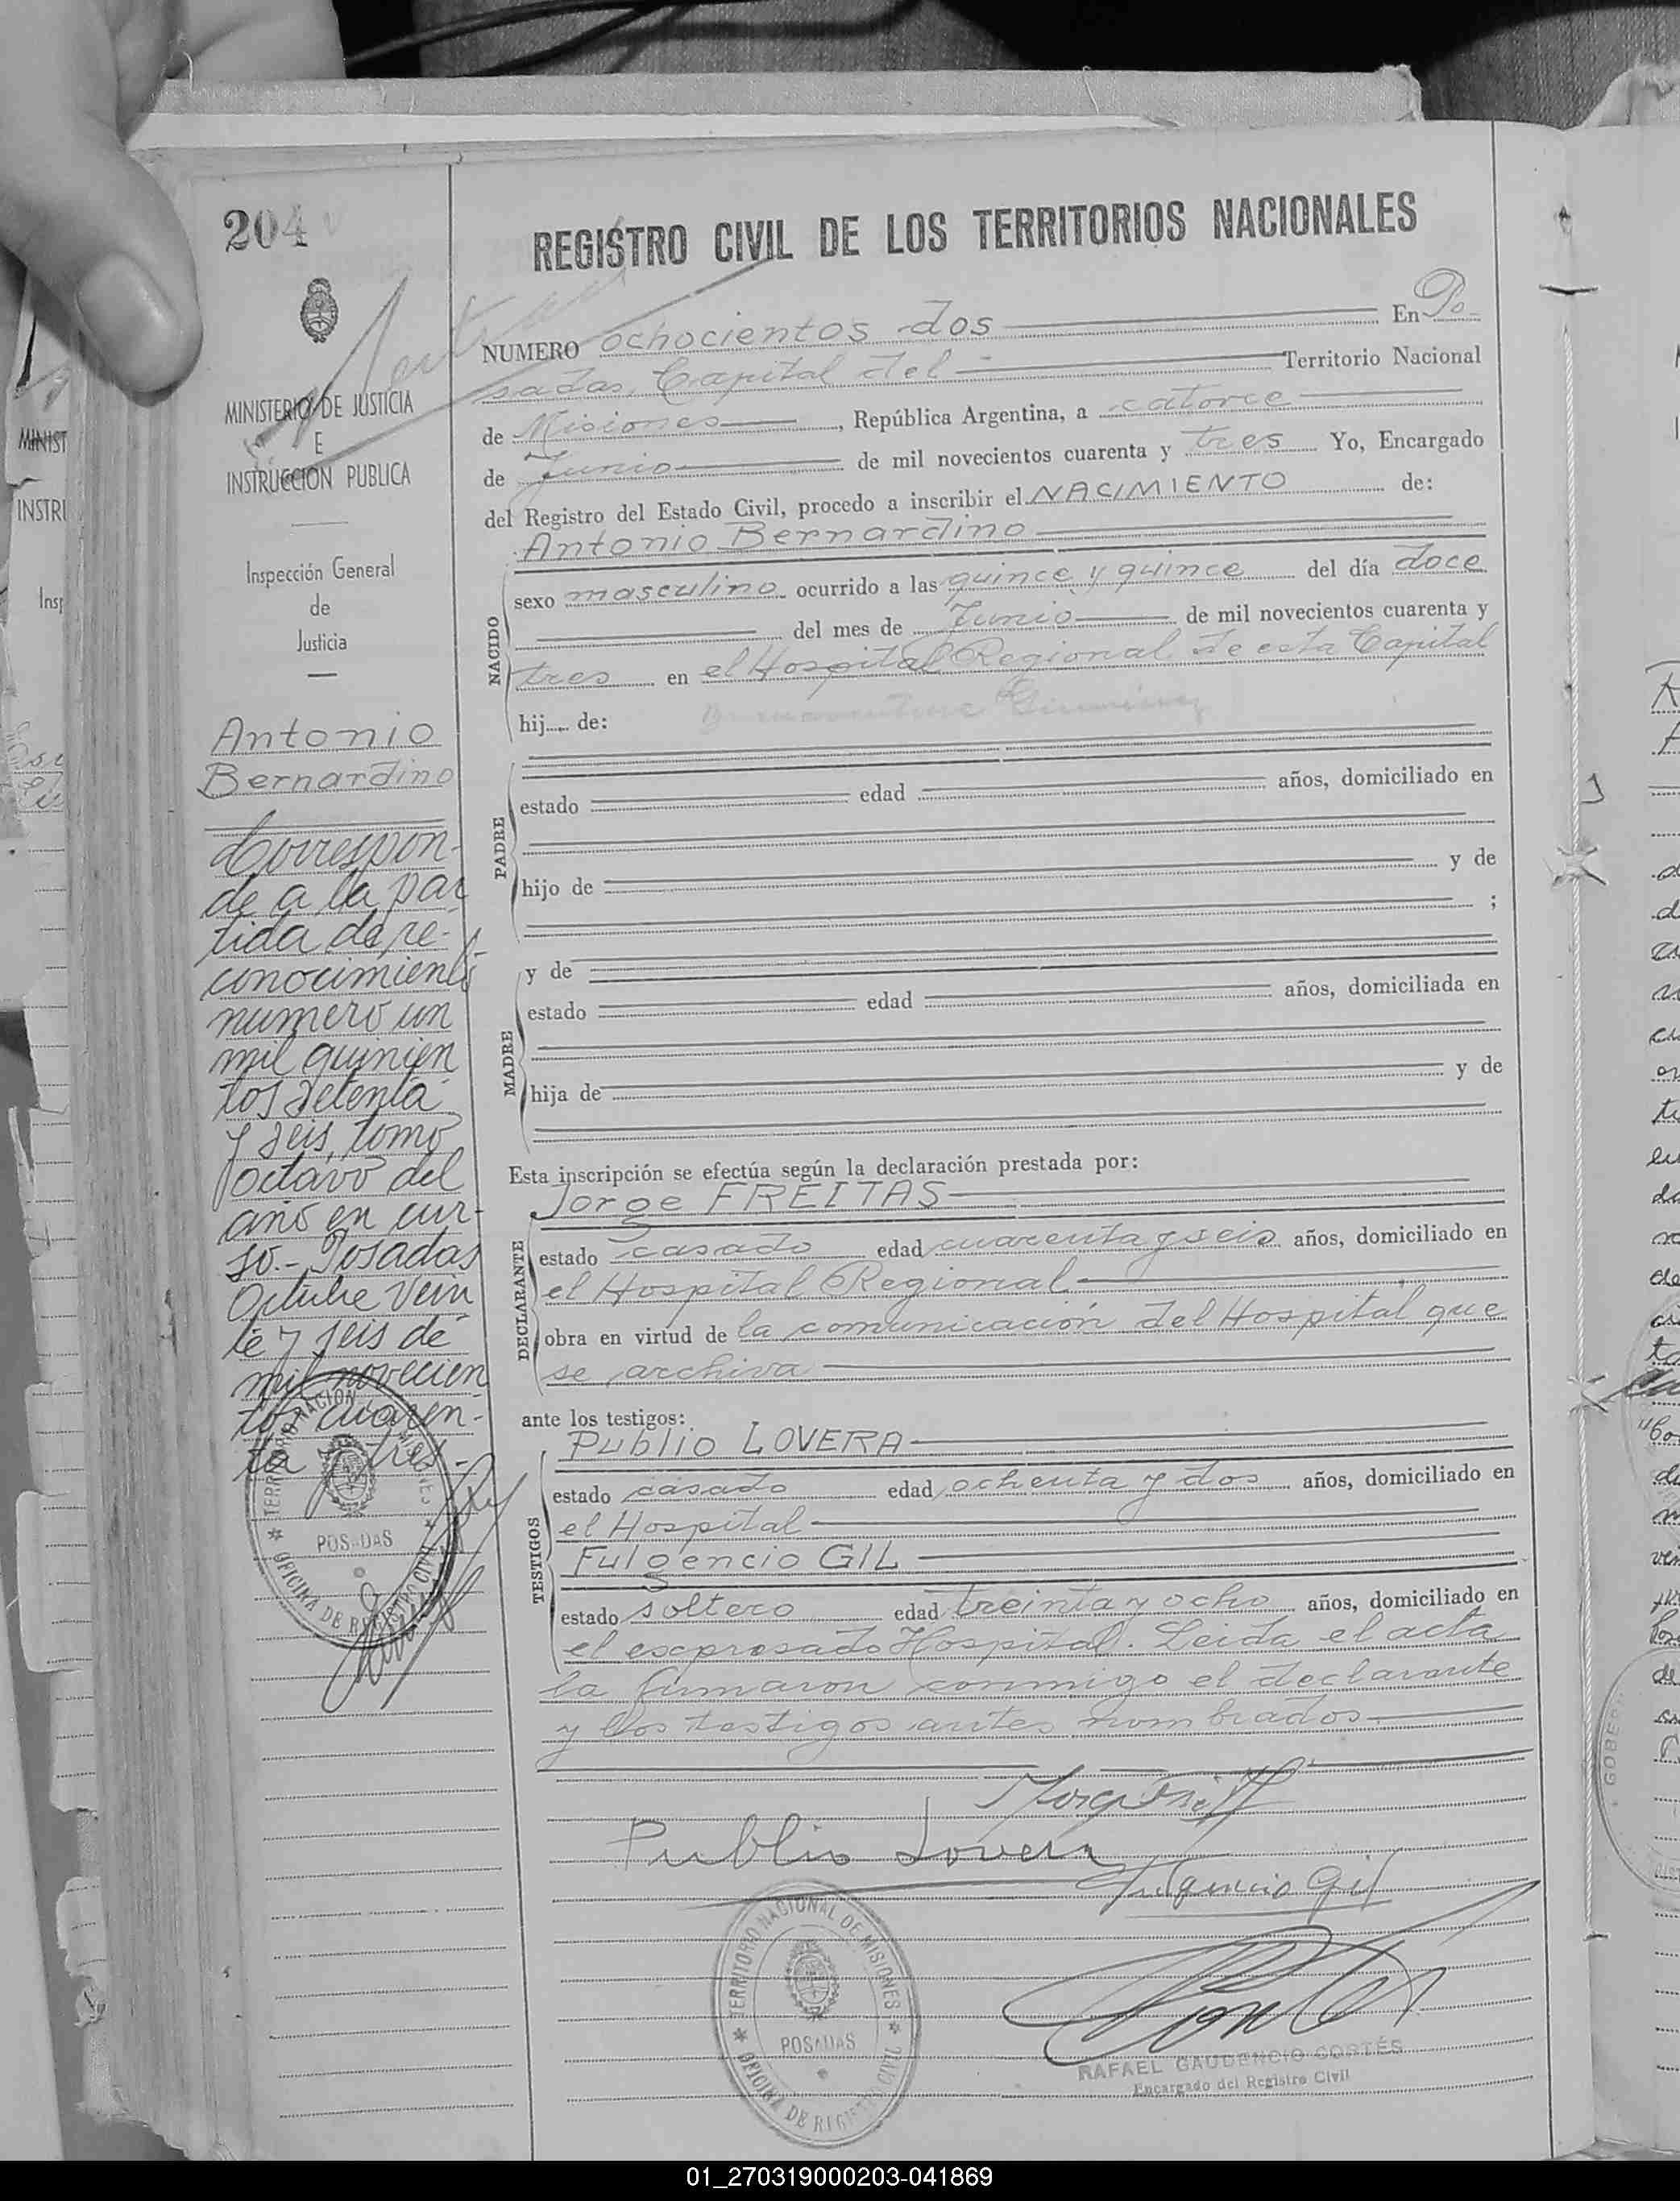 204
REGISTRO CIVIL DE LOS TERRITORIOS NACIONALES
MINISTERIO DE JUSTICIA
E
INSTRUCCION PUBLICA
Inspección General
de
Justicia
Antonio
Bernardino
Correspon-
de a la par
tida de re-
conocimiento
numero un
mil quinien
tos setenta
y seis, tomo
octavo del
año en cur-
so.- Posadas
Octubre vein
te y seis de
mil novecien
tos cuaren-
ta y tres.-
TERRITORIO NACIONAL DE MISIONES
POSADAS
OFICINA DE REGISTRO CIVIL
NUMERO ochocientos dos En Po-
sadas, Capital del Territorio Nacional
de Misiones, República Argentina, a catorce
de Junio de mil novecientos cuarenta y tres Yo, Encargado
del Registro del Estado Civil, procedo a inscribir el NACIMIENTO de:
Antonio Bernardino
NACIDO
sexo masculino ocurrido a las quince y quince del día doce
del mes de Junio de mil novecientos cuarenta y
tres en el Hospital Regional de esta Capital
hij.... de:
PADRE
estado edad años, domiciliado en
hijo de y de
;
MADRE
y de
estado edad años, domiciliada en
hija de y de
Esta inscripción se efectúa según la declaración prestada por:
Jorge FREITAS
DECLARANTE
estado casado edad cuarenta y seis años, domiciliado en
el Hospital Regional
obra en virtud de la comunicación del Hospital que
se archiva
ante los testigos:
Publio LOVERA
TESTIGOS
estado casado edad ochenta y dos años, domiciliado en
el Hospital
Fulgencio GIL
estado soltero edad treinta y ocho años, domiciliado en
el expresado Hospital. Leida el acta
la firmaron conmigo el declarante
y los testigos antes nombrados.
Publio Lovera
Fulgencio Gil
TERRITORIO NACIONAL DE MISIONES
POSADAS
OFICINA DE REGISTRO CIVIL
RAFAEL GAUDENCIO CORTÉS
Encargado del Registro Civil
01_270319000203-041869